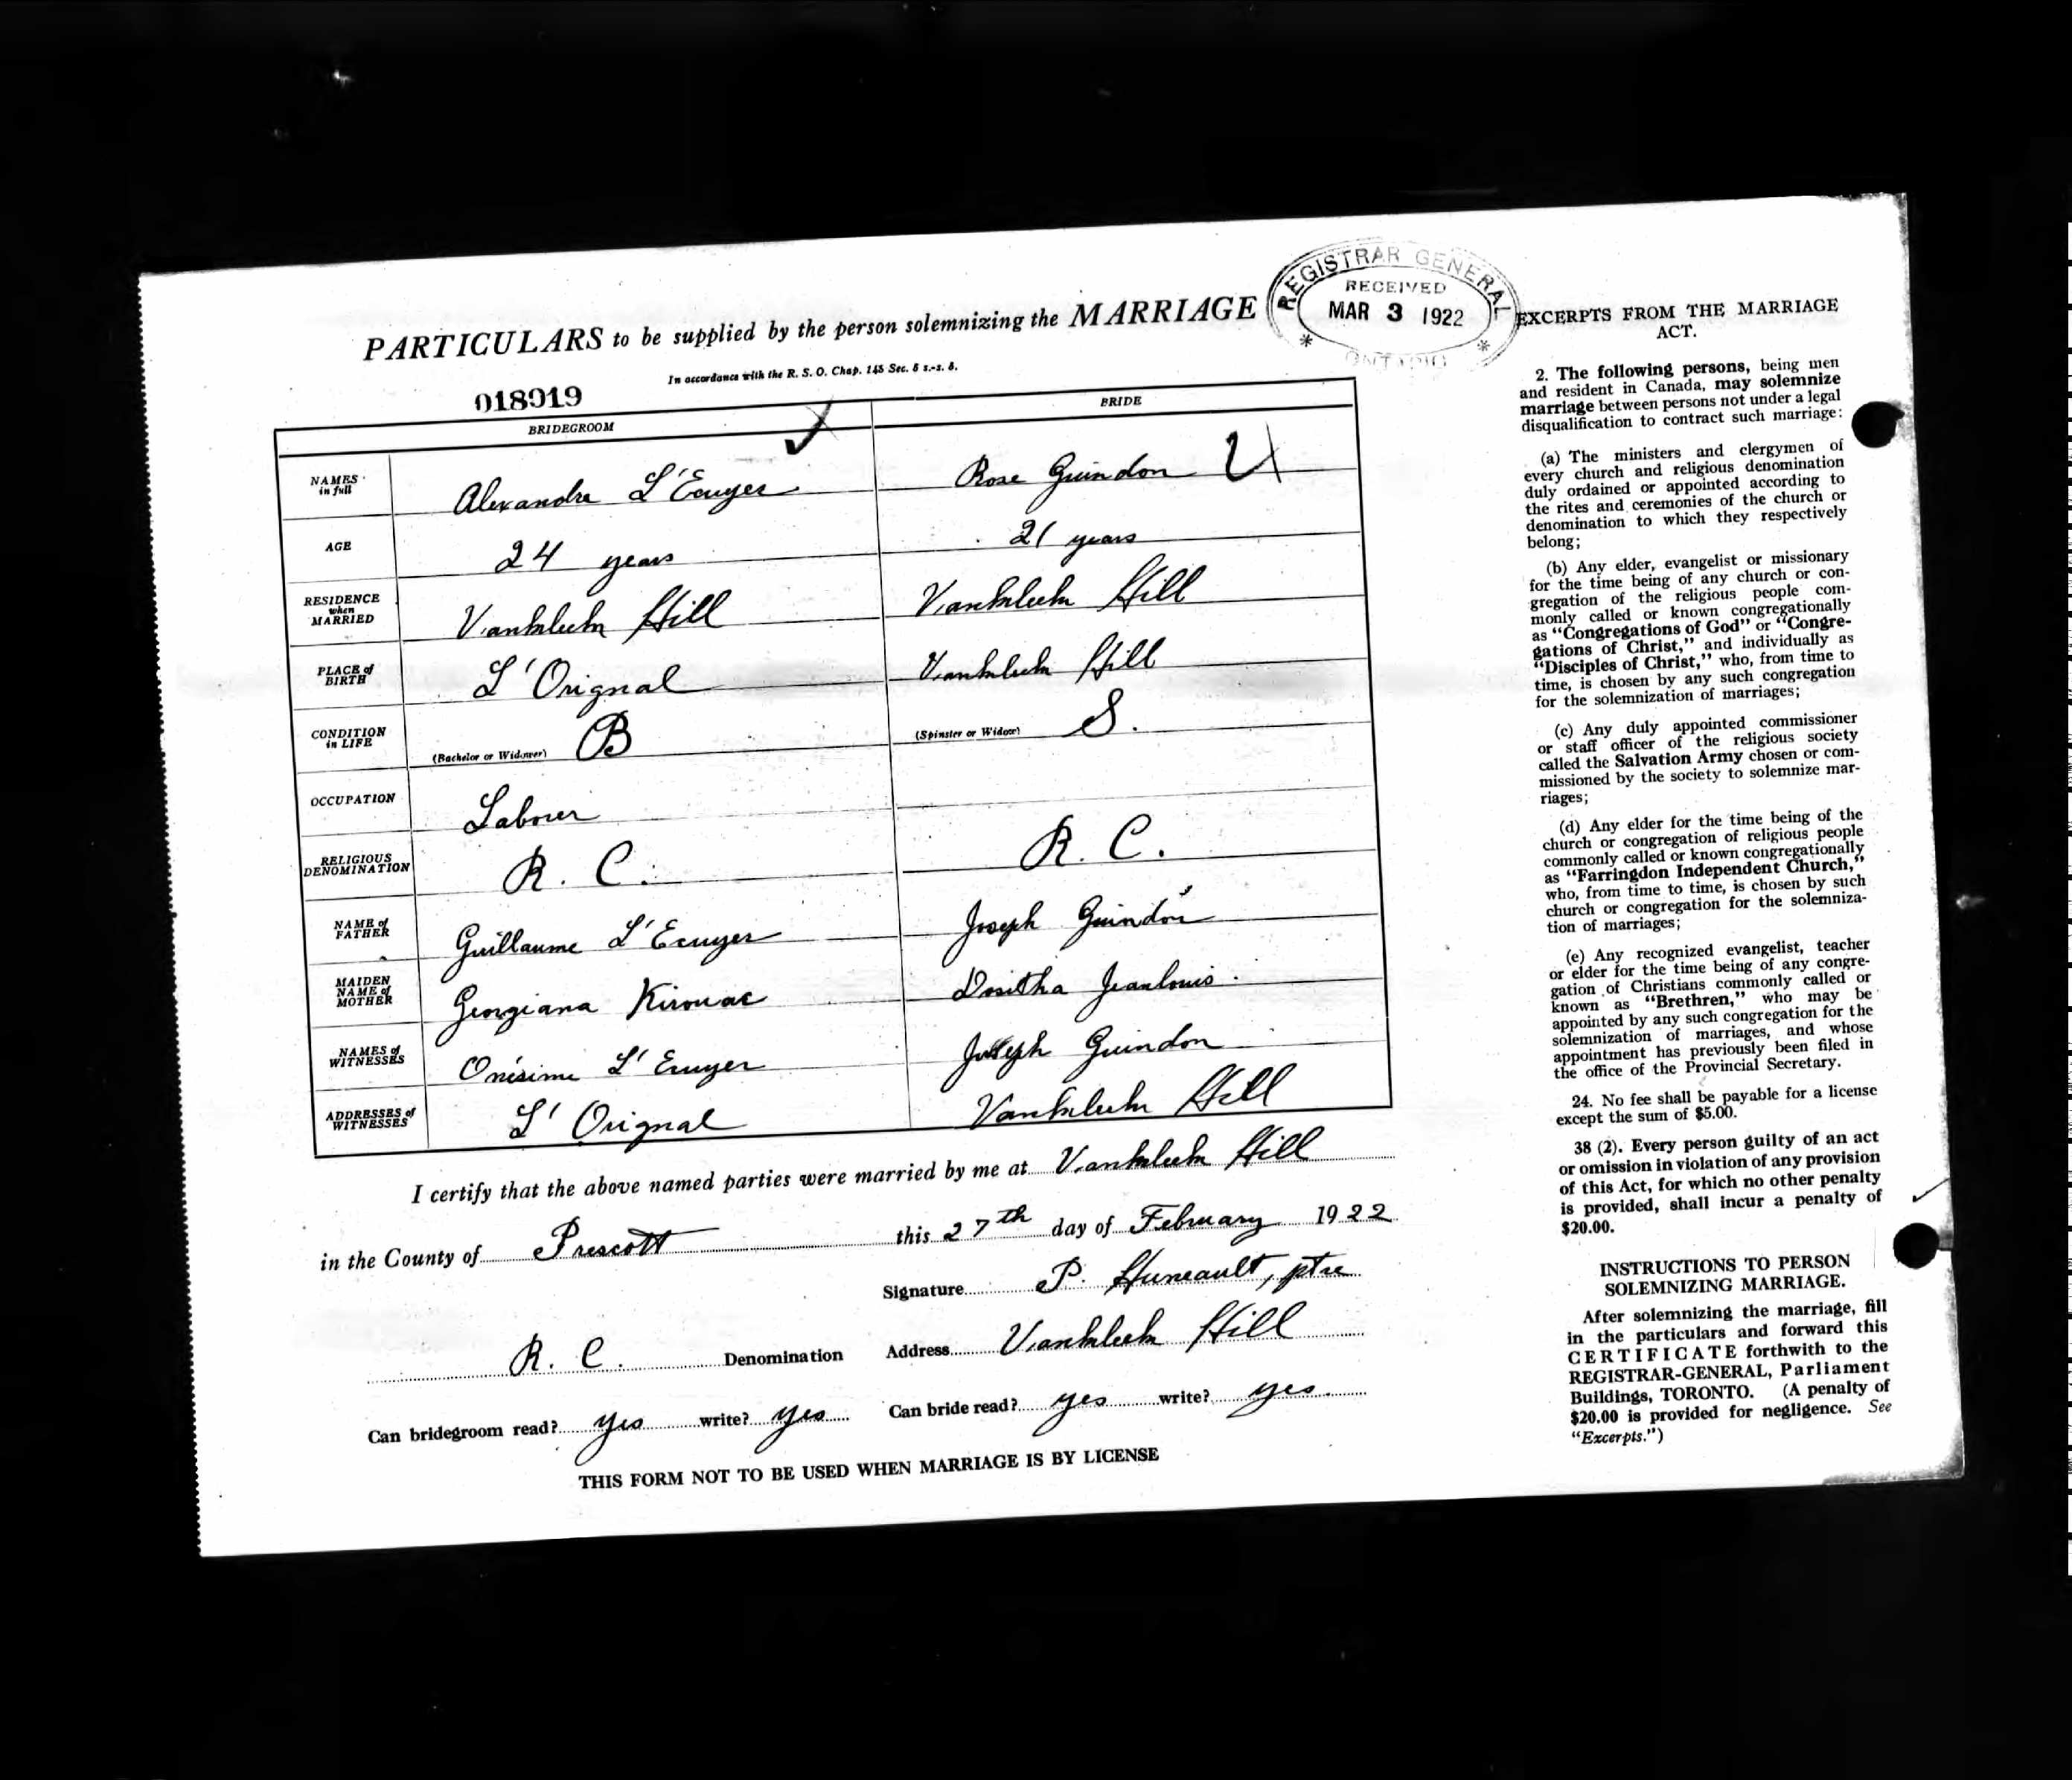 PARTICULARS to be supplied by the person solemnizing the MARRIAGE
REGISTRAR GENERAL
RECEIVED
MAR 3 1922
ONTARIO
In accordance with the R. S. O. Chap. 148 Sec. 8 s.-s. 8.
018919
BRIDEGROOM BRIDE
NAMES in full Alexandre L'Ecuyer Rose Guindon
AGE 24 years 21 years
RESIDENCE when MARRIED Vankleek Hill Vankleek Hill
PLACE of BIRTH L'Orignal Vankleek Hill
CONDITION in LIFE (Bachelor or Widower) B (Spinster or Widow) S.
OCCUPATION Laborer
RELIGIOUS DENOMINATION R. C. R. C.
NAME of FATHER Guillaume L'Ecuyer Joseph Guindon
MAIDEN NAME of MOTHER Georgiana Kirouac Dositha Jeanlouis
NAMES of WITNESSES Onésime L'Ecuyer Joseph Guindon
ADDRESSES of WITNESSES L'Orignal Vankleek Hill
I certify that the above named parties were married by me at Vankleek Hill
in the County of Prescott this 27th day of February 1922
Signature P. Huneault, ptre
R. C. Denomination Address Vankleek Hill
Can bridegroom read? yes write? yes Can bride read? yes write? yes
THIS FORM NOT TO BE USED WHEN MARRIAGE IS BY LICENSE
EXCERPTS FROM THE MARRIAGE
ACT.
2. The following persons, being men
and resident in Canada, may solemnize
marriage between persons not under a legal
disqualification to contract such marriage:
(a) The ministers and clergymen of
every church and religious denomination
duly ordained or appointed according to
the rites and ceremonies of the church or
denomination to which they respectively
belong;
(b) Any elder, evangelist or missionary
for the time being of any church or con-
gregation of the religious people com-
monly called or known congregationally
as "Congregations of God" or "Congre-
gations of Christ," and individually as
"Disciples of Christ," who, from time to
time, is chosen by any such congregation
for the solemnization of marriages;
(c) Any duly appointed commissioner
or staff officer of the religious society
called the Salvation Army chosen or com-
missioned by the society to solemnize mar-
riages;
(d) Any elder for the time being of the
church or congregation of religious people
commonly called or known congregationally
as "Farringdon Independent Church,"
who, from time to time, is chosen by such
church or congregation for the solemniza-
tion of marriages;
(e) Any recognized evangelist, teacher
or elder for the time being of any congre-
gation of Christians commonly called or
known as "Brethren," who may be
appointed by any such congregation for the
solemnization of marriages, and whose
appointment has previously been filed in
the office of the Provincial Secretary.
24. No fee shall be payable for a license
except the sum of $5.00.
38 (2). Every person guilty of an act
or omission in violation of any provision
of this Act, for which no other penalty
is provided, shall incur a penalty of
$20.00.
INSTRUCTIONS TO PERSON
SOLEMNIZING MARRIAGE.
After solemnizing the marriage, fill
in the particulars and forward this
CERTIFICATE forthwith to the
REGISTRAR-GENERAL, Parliament
Buildings, TORONTO. (A penalty of
$20.00 is provided for negligence. See
"Excerpts.")